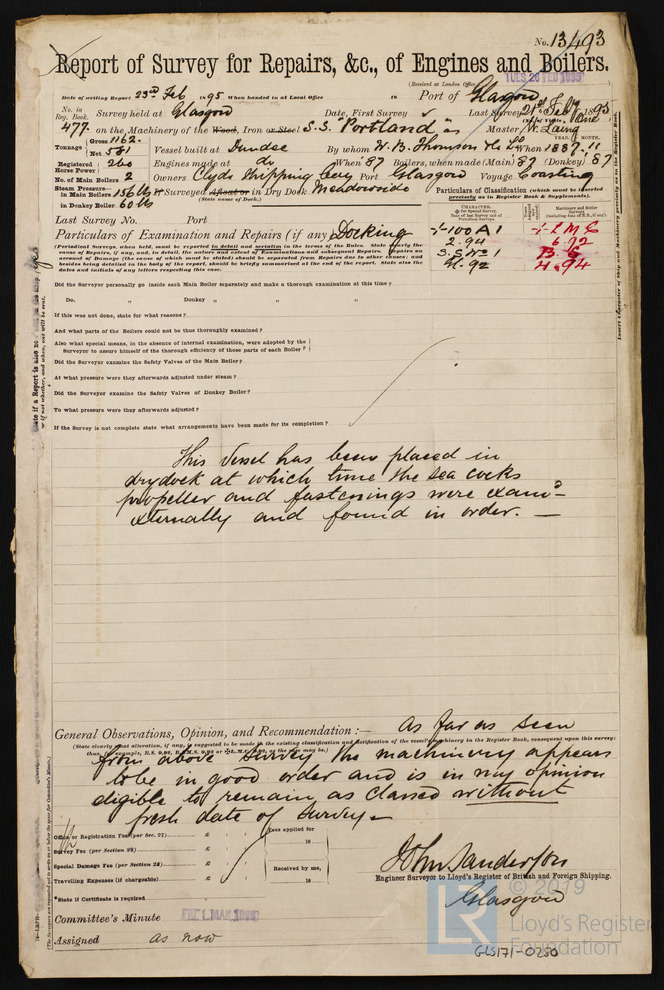 No. 13493
Report of Survey for Repairs, &c., of Engines and Boilers.
(Received at London Office TUES. 26 FEB 1895
Date of writing Report 23rd Feb 1895 When handed in at Local Office 18 Port of Glasgow
No. in Reg. Book. Survey held at Glasgow Date, First Survey Last Survey 21st Feby 1895
477. on the Machinery of the Wood, Iron or Steel S.S. "Portland" Master W. Laing
Tonnage Gross 1162. Net 581 Vessel built at Dundee By whom W. B. Thompson & Co Ld When 1887. 11
YEAR. MONTH.
Registered Horse Power 260 Engines made at do When 87 Boilers, when made (Main) 87 (Donkey) 87
No. of Main Boilers 2 Owners Clyde Shipping Coy Port Glasgow Voyage Coasting
Steam Pressure in Main Boilers 156 lbs If Surveyed Afloat or in Dry Dock Meadowside
(State name of Dock.)
in Donkey Boiler 60 lbs
Particulars of Classification (which must be inserted precisely as in Register Book & Supplements).
Last Survey No. Port
CHARACTER. Date of last Survey and of Periodical Surveys.
Machinery and Boiler Surveys (including date of N.B., if any).
100 A1 L M C
2.94 6.92
S.S. No 1 B.S
Gl. 92 4.94
Particulars of Examination and Repairs (if any) Docking
(Periodical Surveys, when held, must be reported in detail and seriatim in the terms of the Rules. State clearly the
cause of Repairs, if any, and, in detail, the nature and extent of Examinations and subsequent Repairs. Repairs on
account of Damage (the cause of which must be stated) should be separated from Repairs due to other causes; and
besides being detailed in the body of the report, should be briefly summarised at the end of the report. State also the
dates and initials of any letters respecting this case.
Did the Surveyor personally go inside each Main Boiler separately and make a thorough examination at this time?
Do. " Donkey " "
If this was not done, state for what reasons?
And what parts of the Boilers could not be thus thoroughly examined?
Also what special means, in the absence of internal examination, were adopted by the
Surveyor to assure himself of the thorough efficiency of those parts of each Boiler?
Did the Surveyor examine the Safety Valves of the Main Boiler?
At what pressure were they afterwards adjusted under steam?
Did the Surveyor examine the Safety Valves of Donkey Boiler?
To what pressure were they afterwards adjusted?
If the Survey is not complete state what arrangements have been made for its completion?
This Vessel has been placed in
drydock at which time the sea cocks
propeller and fastenings were exam-
xternally and found in order. —
General Observations, Opinion, and Recommendation:— As far as seen
(State clearly what alteration, if any, is suggested to be made in the existing classification and notification of the vessel's machinery in the Register Book, consequent upon this survey:
from above survey the machinery appears
to be in good order and is in my opinion
eligible to remain as classed without
fresh date of survey —
Office or Registration Fee (per Sec. 27) £ Fees applied for
Survey Fee (per Section 28) £ 18
Special Damage Fee (per Section 28) £ Received by me,
Travelling Expenses (if chargeable) £ 18
*State if Certificate is required
John Sanderson
Engineer Surveyor to Lloyd's Register of British and Foreign Shipping.
Glasgow
Committee's Minute FRI. 1 MAR 1895
Assigned as now
© 2019
LR
Lloyd's Register
Foundation
GLS171-0280